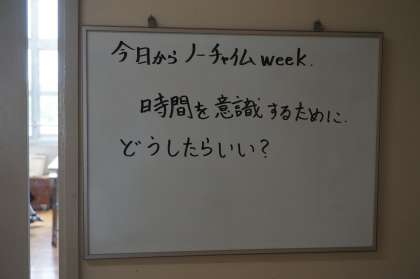 今日からノーチャイムweek.
時間を意識するために.
どうしたらいい?